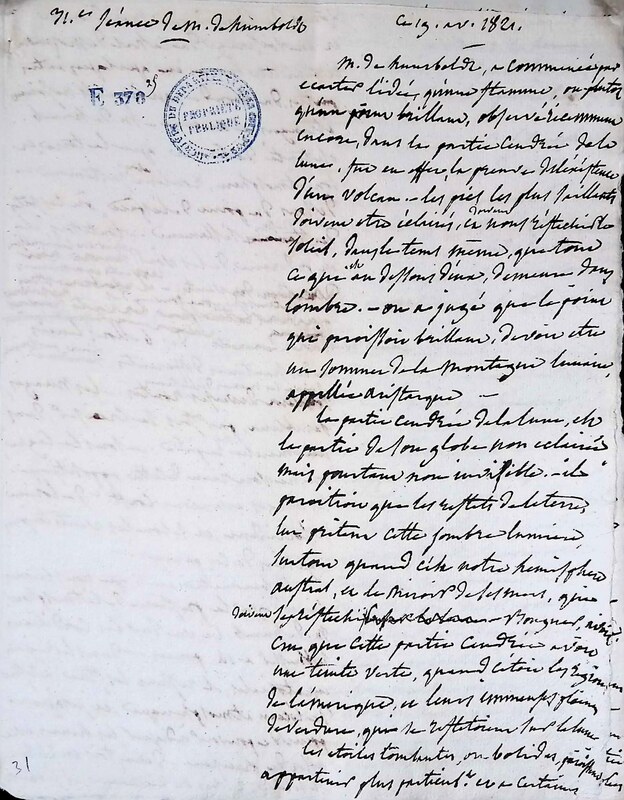 31.es Séance de M. de humboldt
Ce 9. av. 1821.
E 370
29
PROPRIÉTÉ
PUBLIQUE
M. de humboldt, a commencé par
écarter l'idée, qu'une flamme, ou plutot
qu'un point brillant, observé récemment
encore, dans la partie cendrée de la
lune, fut en effet la preuve de l'existence
d'un volcan. - les pics les plus saillants
doivent etre éclairés, et nous réfléchir le
doivent
soleil, dans le tems meme, que tout
ce qui est au dessous d'eux, demeure dans
l'ombre. - on a jugé que le point
qui paroissoit brillant, devoit etre
au sommet de la montagne lunaire,
appellée aristarque -
la partie cendrée de la lune, est
la partie de son globe non eclairée
mais pourtant non invisible. - il
paroitroit que les reflets de la terre,
lui pretent cette sombre lumiere,
surtout quand c'est notre hemisphere
austral, et le miroir de ses mers, qui
doivent se réfléchir - Bouguer, avoit
cru que cette partie cendrée avoit
une teinte verte, quand c'etoit les régions
de l'amérique, et leurs immenses plaines
de verdure, qui se reflétoient sur la lune
les etoiles tombantes, ou bolides, paroissent
appartenir plus particult. et a certaines
31